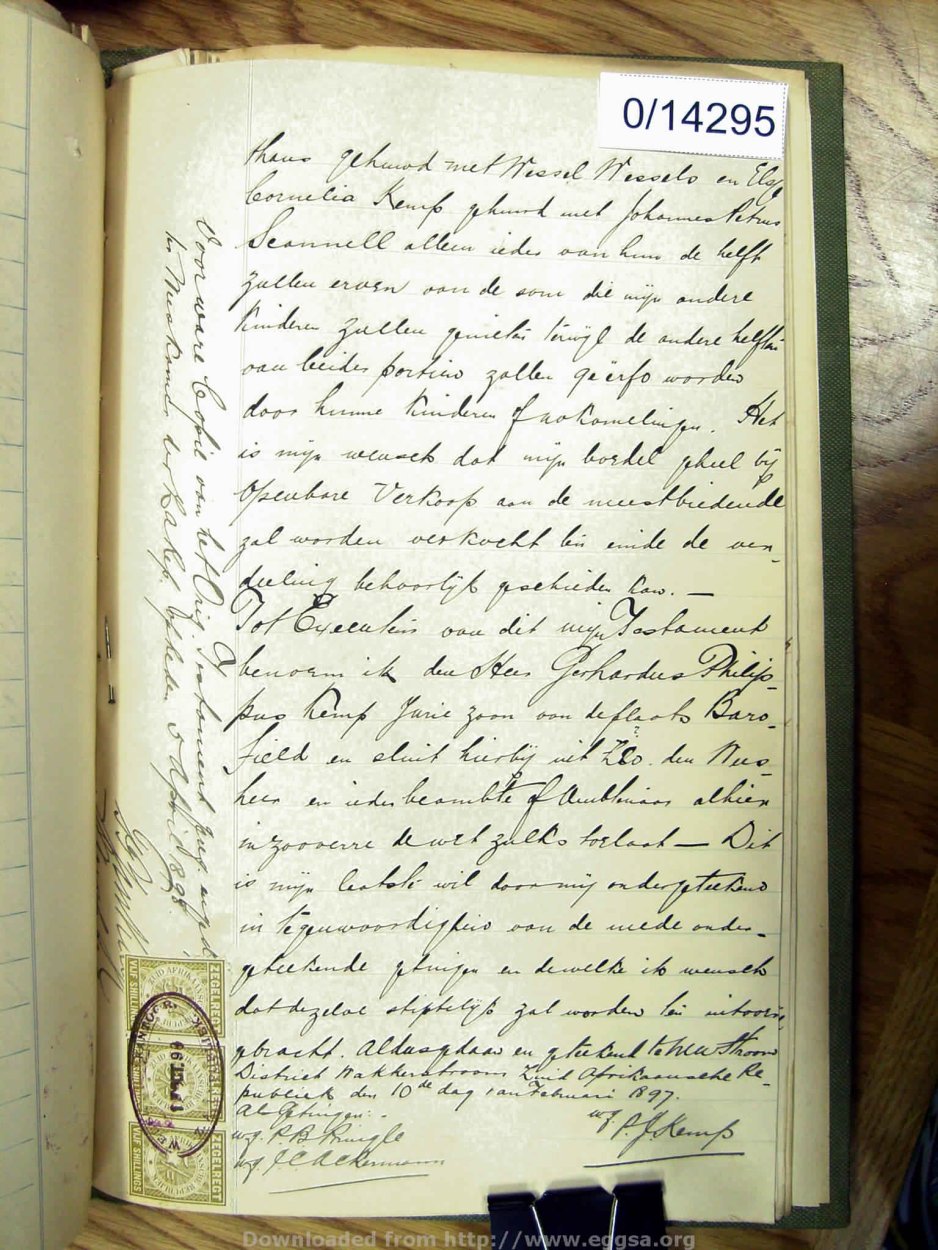 0/14295
thans gehuwd met Wessel Wessels en Elsje
Cornelia Kemp gehuwd met Johannes Petrus
Scannell alleen ieder van hun de helft
zullen erven van de som die mijn andere
Kinderen zullen genieten terwijl de andere helften
van beider portien zullen geërfd worden
door hunne Kinderen of nakomelingen. Het
is mijn wensch dat mijn boedel geheel bij
Openbare Verkoop aan de meestbiedende
zal worden verkocht ten einde de ver-
deeling behoorlijk geschieden kan. —
Tot Executeur van dit mijn Testament
benoem ik den Heer Gerhardus Philip-
pus Kemp Jurie zoon van de plaats
field en sluit hierbij uit den Wees
heer en ieder beambte of Ambtenaar alhier
in zooverre de wet zulks toelaat — Dit
is mijn laatste wil door mij ondergeteekend
in tegenwoordigheid van de mede onder-
geteekende getuigen en dewelke ik wensch
dat dezelve stiptelijk zal worden ten uitvoer
gebracht. Aldus gedaan en geteekend te
District Wakkerstroom Zuid Afrikaansche Re-
publiek den 10de dag van Februari 1897.
Als Getuigen:-
wg. P. J. Kemp
wg. R B Pringle
wg. J C Ackermann
Voor ware Copie van het Orig. Testament
April 1898.
ZEGELRECHT
VIJF SHILLINGS
ZEGELRECHT
VIJF SHILLINGS
Downloaded from http://www.eggsa.org